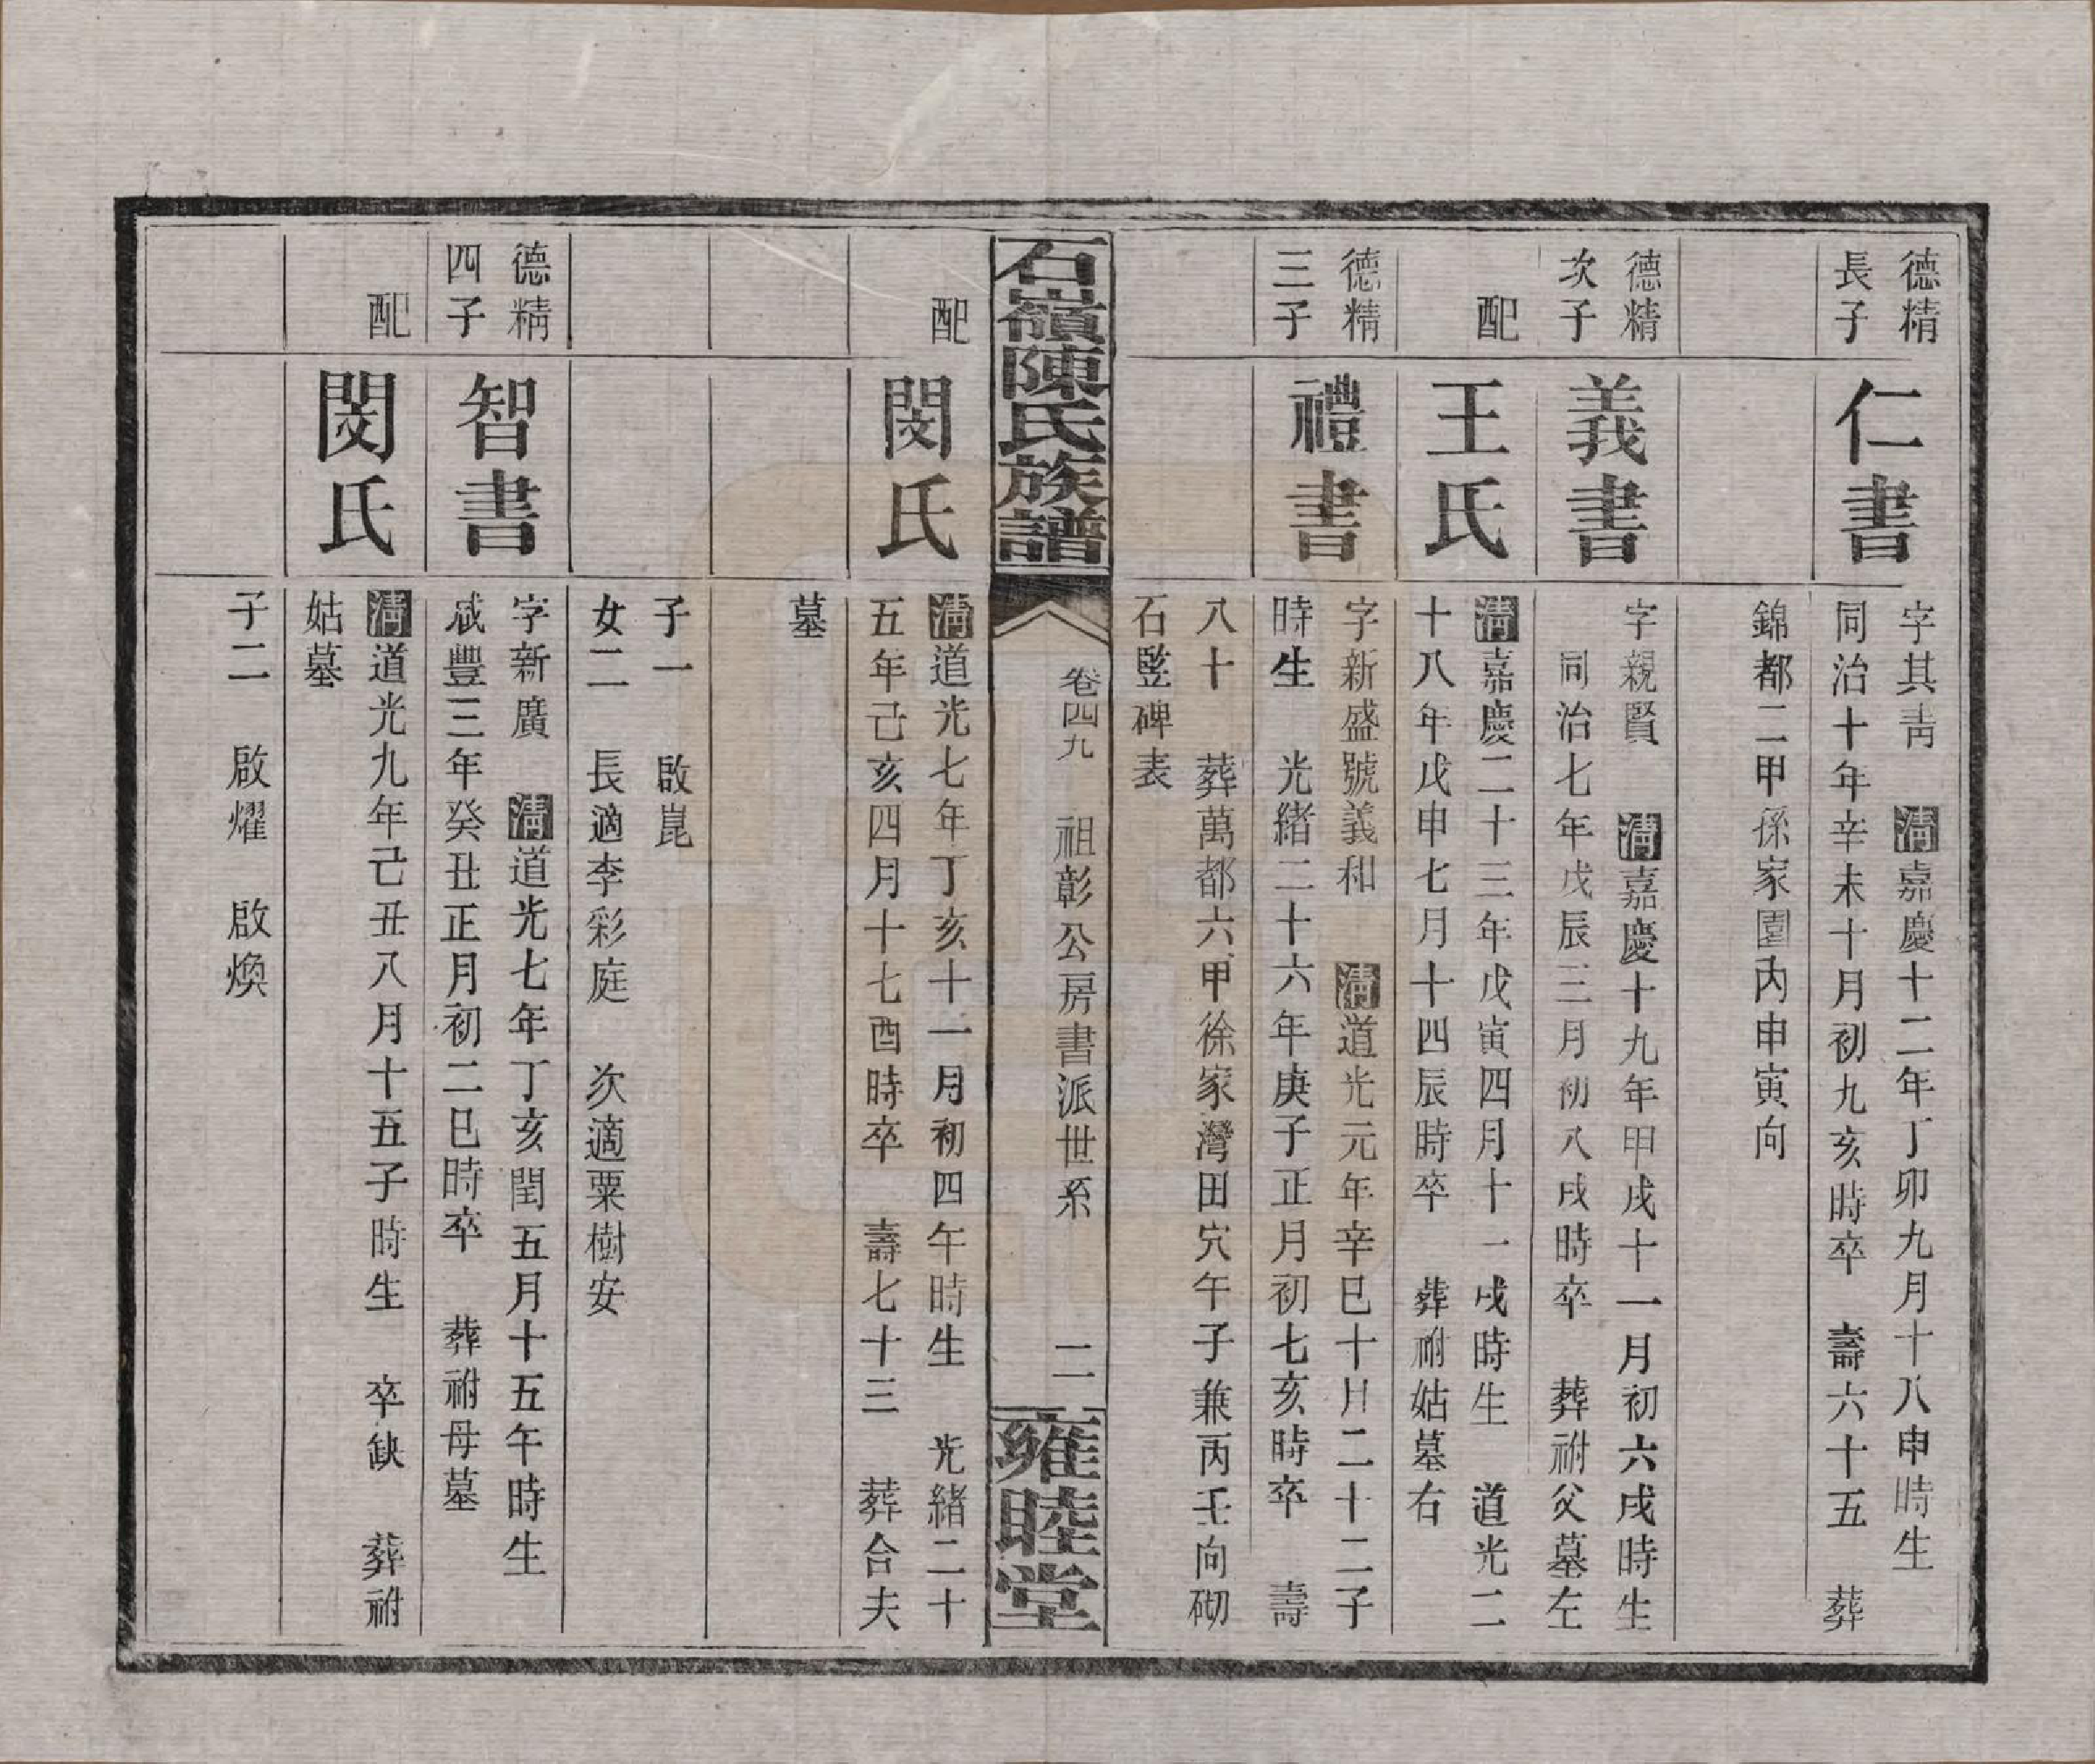 德精
長子
仁書
字其青　清嘉慶十二年丁卯九月十八申時生
同治十年辛未十月初九亥時卒　壽六十五　葬
錦都二甲孫家園內申寅向
德精
次子
義書
字親賢　清嘉慶十九年甲戌十一月初六戌時生
同治七年戊辰三月初八戌時卒　葬祔父墓左
配
王氏
清嘉慶二十三年戊寅四月十一戌時生　道光二
十八年戊申七月十四辰時卒　葬祔姑墓右
德精
三子
禮書
字新盛號義和　清道光元年辛巳十月二十二子
時生　光緒二十六年庚子正月初七亥時卒　壽
八十　葬萬都六甲徐家灣田穴午子兼丙壬向砌
石竪碑表
石嶺陳氏族譜
卷四九　祖彰公房書派世系　二
雍睦堂
配
閔氏
清道光七年丁亥十一月初四午時生　光緒二十
五年己亥四月十七酉時卒　壽七十三　葬合夫
墓
子一　啟崑
女二　長適李彩庭　次適粟樹安
德精
四子
智書
字新廣　清道光七年丁亥閏五月十五午時生
咸豐三年癸丑正月初二巳時卒　葬祔母墓
配
閔氏
清道光九年己丑八月十五子時生　卒缺　葬祔
姑墓
子二　啟燿　啟煥